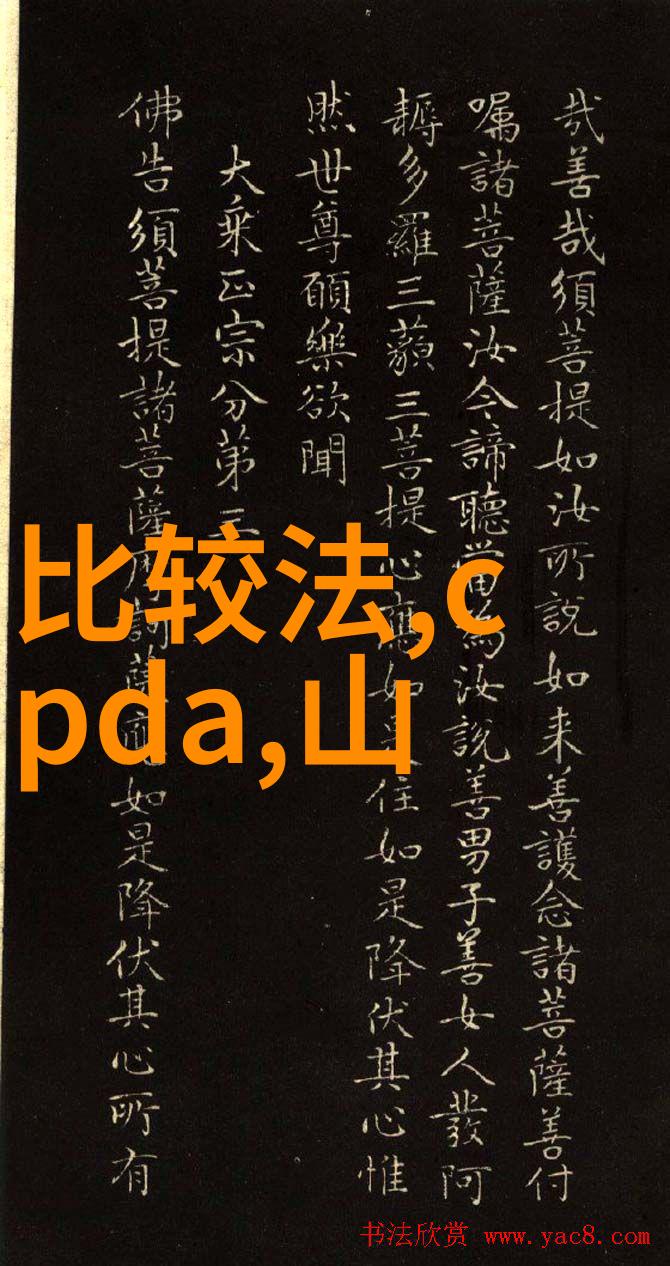 哉善哉須菩提如汝所說如来善護念諸菩薩善付
嘱諸菩薩汝今諦聽當為汝說善男子善女人發阿
耨多羅三藐三菩提心應如是住如是降伏其心惟
然世尊願樂欲聞
大乘正宗分第三
佛告須菩提諸菩薩摩訶薩應如是降伏其心所有
比较法,c
pda,山
书法欣赏 www.yac8.com